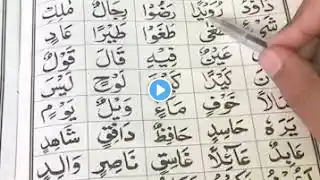 دَاوٗدَ رُوَيْدًا رَضُوْا رِجَالٌ مُلِئَتْ
شَىْءٍ طَغَوْا طَيْرًا عَادٍ
عَيْنٌ فِيْهِ قَالَ قَوْلٌ
كَيْدًا لَوْحٍ لَيْسَ
خَوْفٍ مَآءً وَيْلٌ يَوْمٍ
يَرَهٗ حَاسِدٍ حَافِظٌ دَافِقٍ شَاهِدٍ
عَابِدٌ عَآئِلًا غَاسِقٍ نَاصِرٍ وَالِدٍ